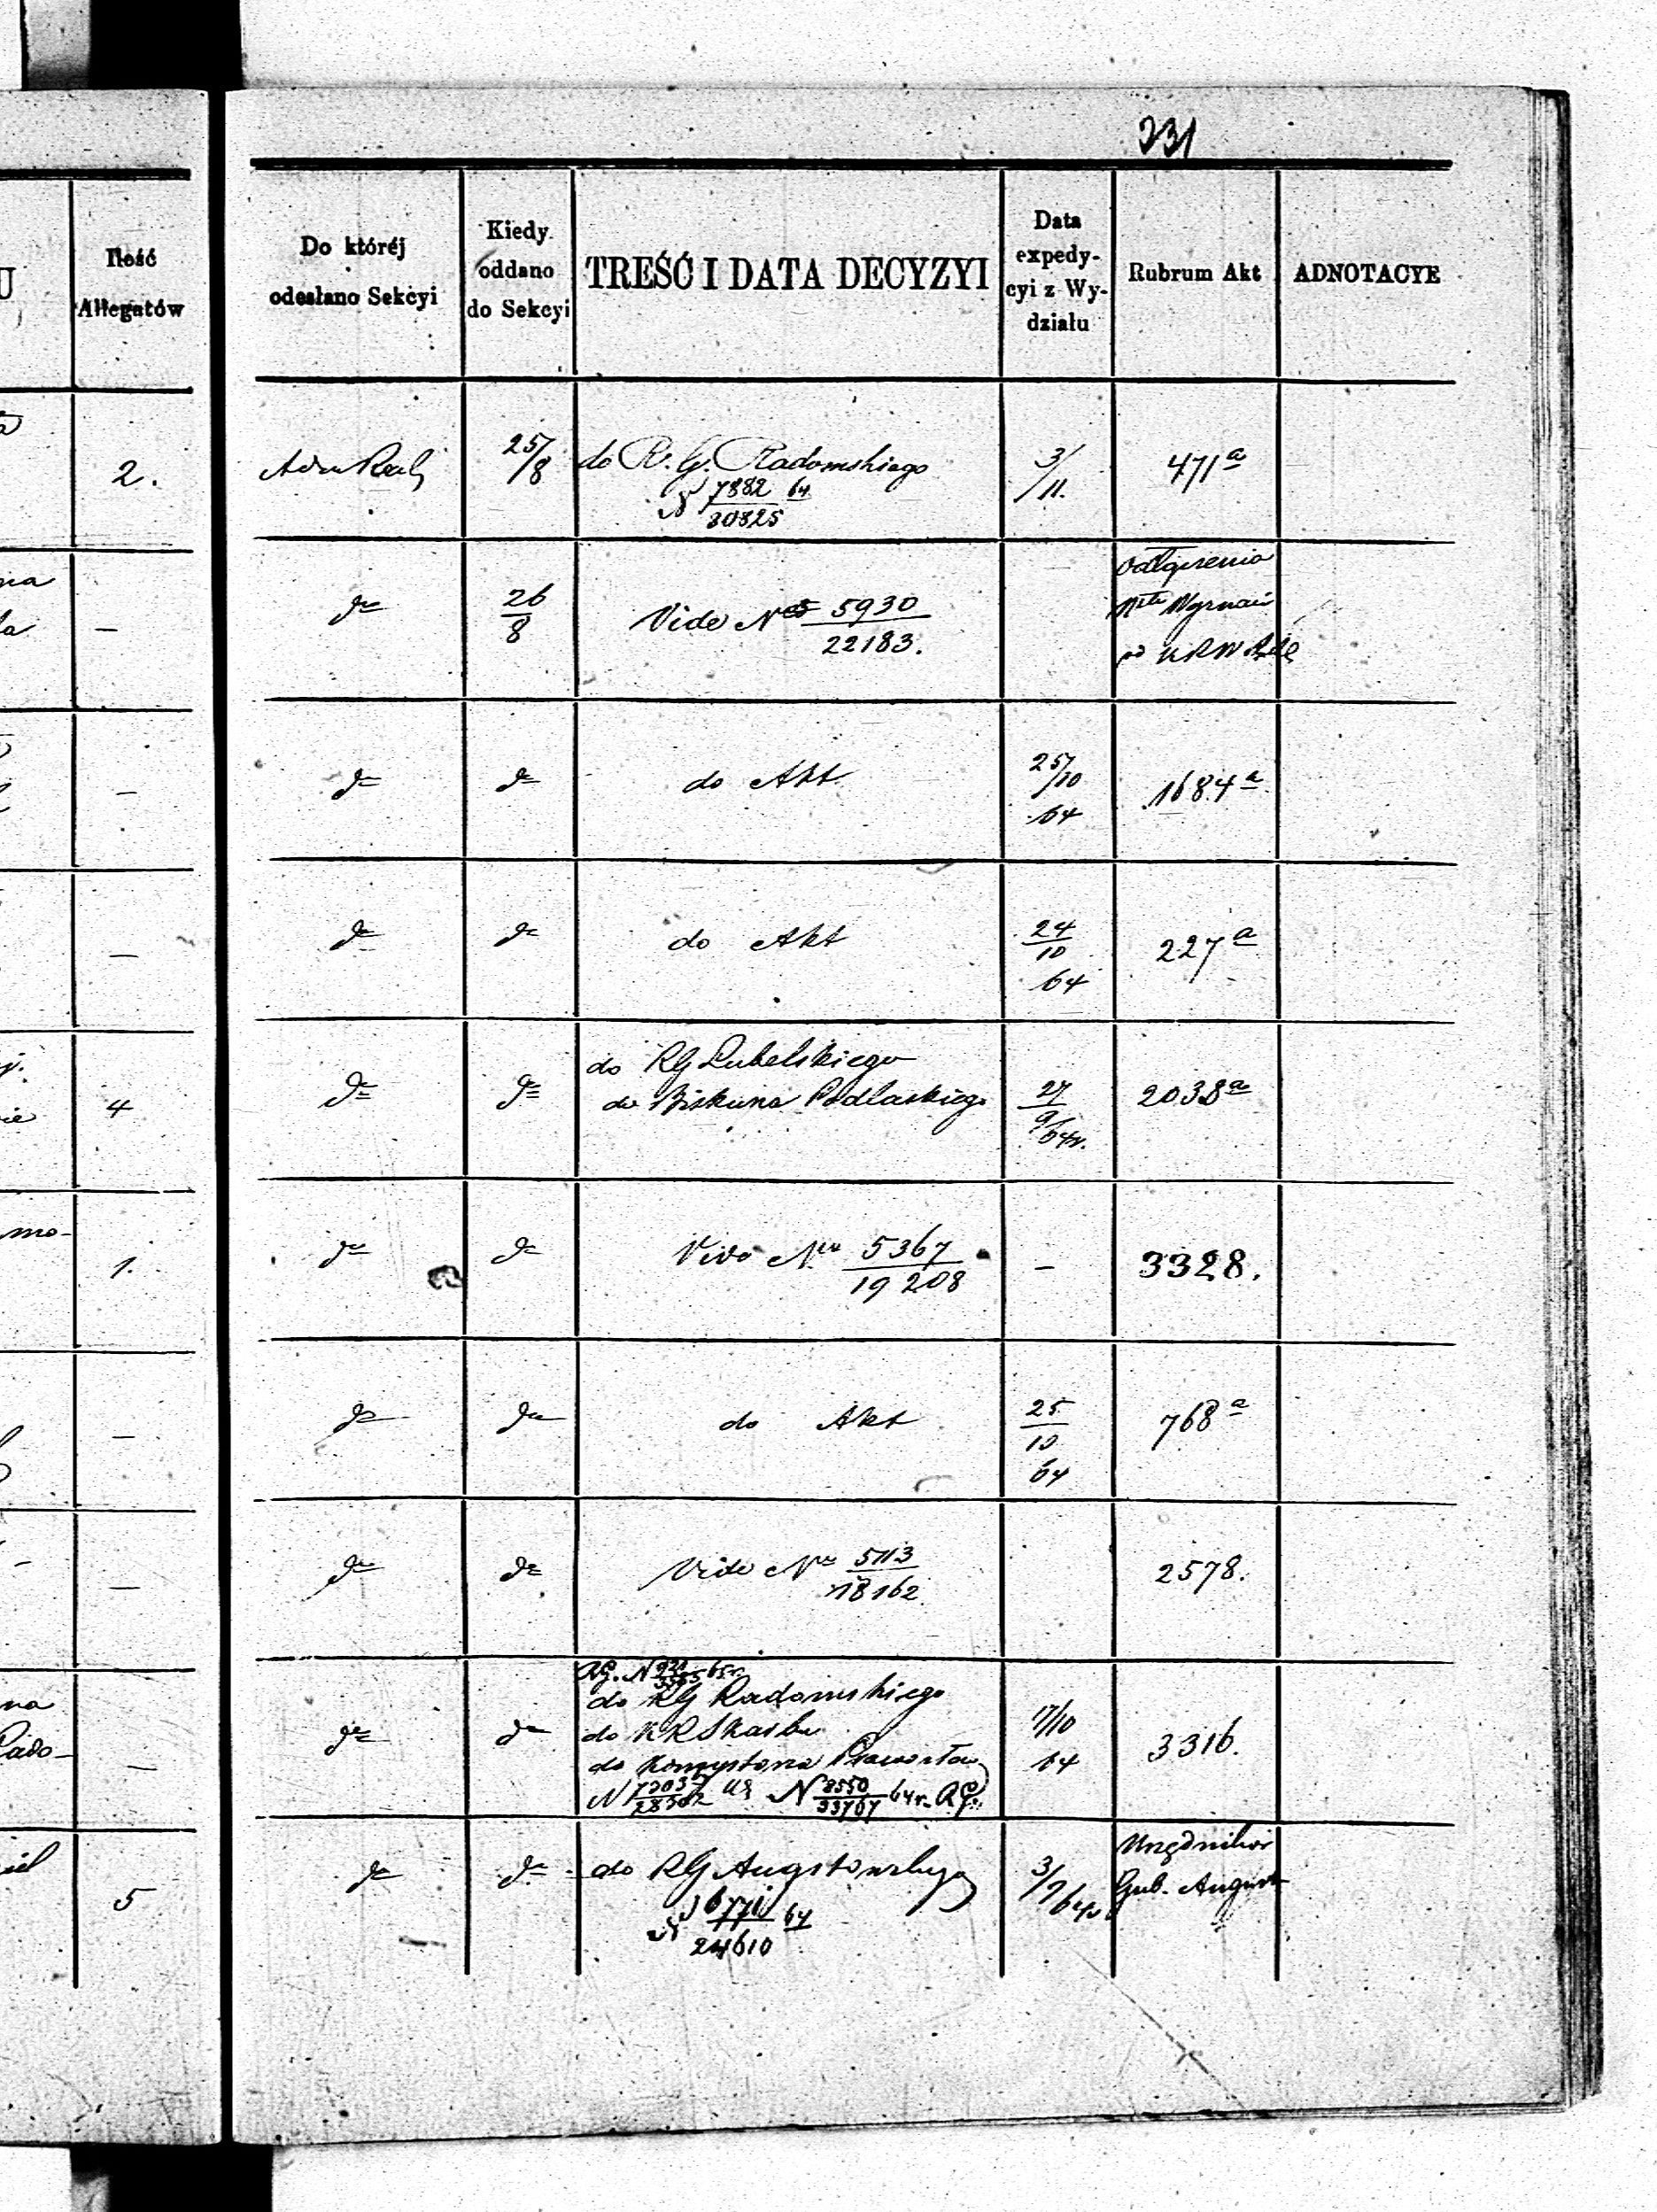 231
U
Ilość
Allegatów
Do któréj
odesłano Sekcyi
Kiedy
oddano
do Sekcyi
TREŚĆ I DATA DECYZYI
Data
expedy-
cyi z Wy-
działu
Rubrum Akt
ADNOTACYE
2.
25/8
do R. G. Radomskiego
N 7882 64
30825
3/11.
471 a
na
la
—
do
26
8
Vide Nos 5930
22183.
odłączenia
Wyznań
—
do
do
do Akt
25/10
64
1684 a
—
do
do
do Akt
24
10
64
227 a
4
do
do
do RG Lubelskiego
do Biskupa Podlaskiego
27
9/64r.
2038 a
mo-
1.
do
do
Vide No 5367
19208
—
3328.
—
do
do
do Akt
25
10
64
768 a
—
do
do
Vide No 5113
18162
2578.
na
Rado-
—
do
do
do RG Radomskiego
do KR Skarbu
do
N 8550 64r.
33767
17/10
64
3316.
iel
5
do
do
do RG Augustowskiego
N 6771 64
24610
3/9 64r
Urzędników
Gub. August